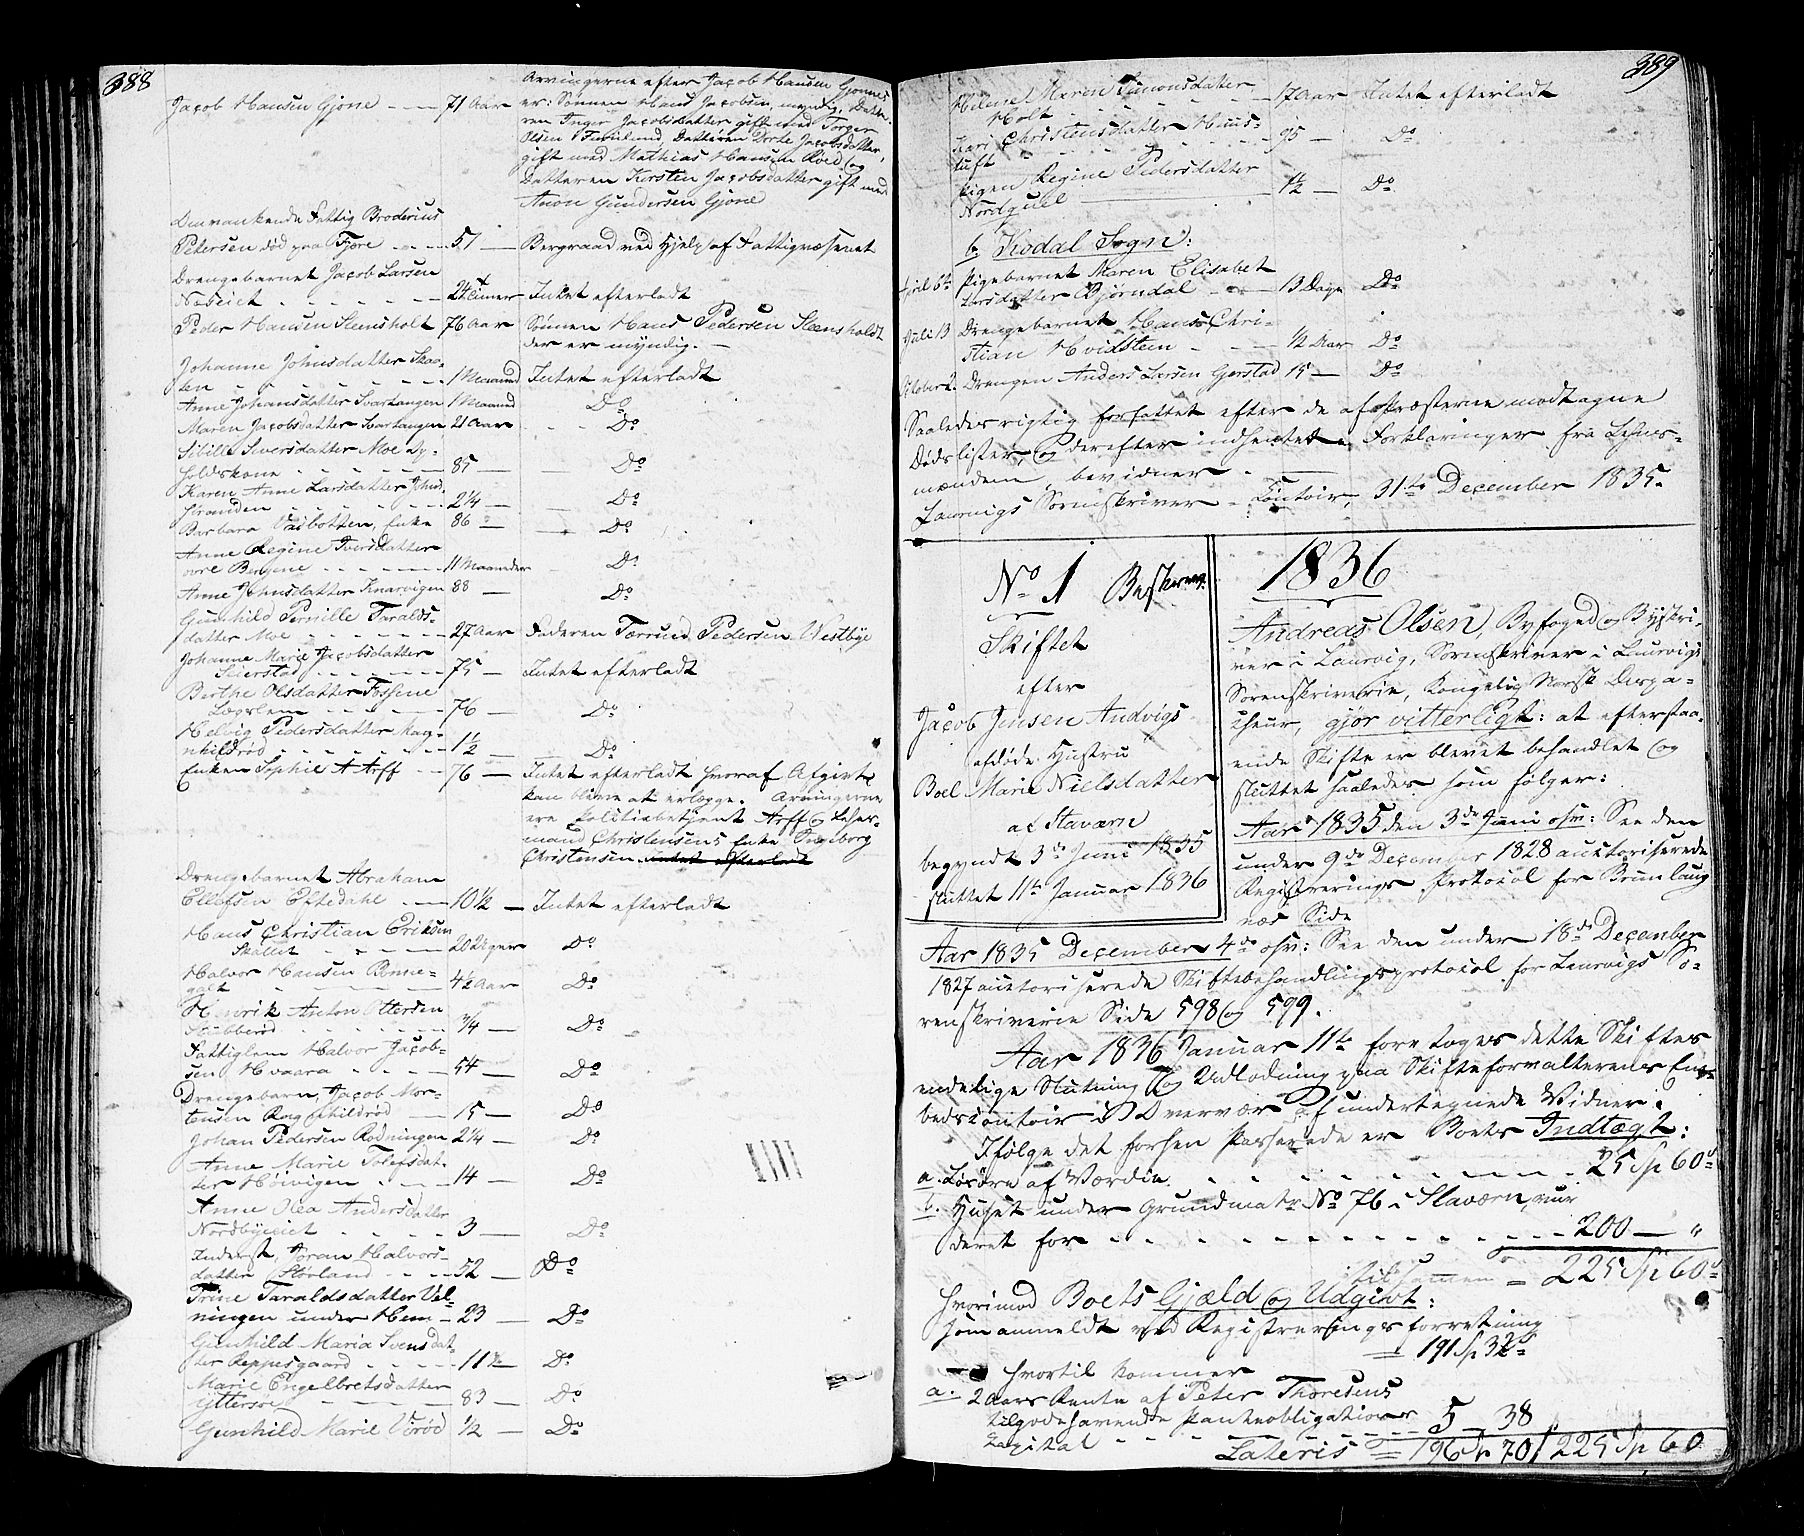 388
Arvingerne efter Jacob Hansen Gjønnes
Jacob Hansen Gjøne - - - 71 Aar
er: Sønnen Hans Jacobsen, myndig, Datte-
ren Inger Jacobsdatter gift med Torger
Olsen Datteren Dorte Jacobsdatter,
gift med Mathias Hansen Roed og
Datteren Kirsten Jacobsdatter gift med
Anon Gundersen Gjøne
Omvankende Fattig Broderius
Petersen død paa Fjære - - - 57 - Begraved ved Hjelp af Fattigvæsenet
Drengebarnet Jacob Larsen
24 Timer Intet efterladt
Peder Hansen Steensholt 76 Aar Sønnen Hans Pedersen Steensholdt
der er myndig. -
Johanne Johnsdatter Skaa-
ten - - - 1 Maaned Intet efterladt
Anne Johansdatter Svartangen 1 Maaned Do
Maren Jacobsdatter Svartangen 21 Aar Do
Sibille Siversdatter Moe Ly-
holdskone - - - 85 - Do
Karen Anne Larsdatter
stranden - - - 2 1/4 - Do
Barbara Valbotten, Enke 86 - Do
Anne Regine Iversdatter
øvre Bergene - - - 11 Maaneder Do
Anne Johnsdatter Knarvigen 88 - Do
Gunhild Pernille Taralds-
datter Moe - - - 27 Aar Faderen Pedersen Westbye
Johanne Marie Jacobsdatter
Seierstad - - - 75 - Intet efterladt
Berthe Olsdatter Fossene
- - - 76 - Do
Helvig Pedersdatter Rag-
nhildrød - - - 1 1/2 - Do
Enken Sophie A Arff - - 76 - Intet efterladt hvoraf Afgivt
kan blive at erlægge. Arvingerne
ere Politiebetjent Arff og Lehns-
mand Christensens Enke Ingeborg
Christensen Intet efterladt
Drengebarnet Abraham
Ellefsen Ektedahl - - 10 1/2 - Intet efterladt
Hans Christian Eriksen
- - - 20 Uger Do
Halvor Hansen Rønne-
galt - - - 4 1/2 Aar Do
Henrik Anton Ottersen
Stubberød - - - 3/4 - Do
Fattiglem Halvor Jacob-
sen Hvaara - - - 54 - Do
Drengebarn, Jacob Mor-
tensen Ragnhildrød - 15 - Do
Johan Pedersen Rødningen 2 1/4 - Do
Anne Marie Tolefsdat-
ter Høivigen - - - 14 - Do
Anne Olea Andersdatter
Nordbyeeiet - - - 3 - Do
Inderst, Jøran Halvors-
datter Størland - - - 52 - Do
Trine Taraldsdatter Vel-
ningen under Hem - 23 - Do
Gunhild Maria Svensdat-
ter Reppesgaard - - - 11 - Do
Marie Engelbretsdatter
Yttersøe - - - 83 - Do
Gunhild Marie Vørød 1/2 - Do
389
Helene Maren Simonsdatter
Holt - - - 17 Aar Intet efterladt
Kari Christensdatter Huus-
tuft - - - 95 - Do
Pigen Regine Pedersdatter
- 1 1/2 - Do
b, Kodal Sogn:
April 6te Pigebarnet Maren Elisabet
Larsdatter Bjørndal - - - 13 Dage Do
Juli 13 Drengebarnet Hans Chri-
stian Hvidstein - - - 1/2 Aar Do
October 2. Drengen Anders Larsen Gjerstad 15 - Do
Saaledes rigtig forfattet efter de af Præsterne modtagne
Dødslister, og derefter indhentede Forklaringer fra Lehns-
mændene, bevidner -
Laurvigs Sorenskriver - Contoir, 31te December 1835.
No 1 Beskreven
Skiftet
efter
Jacob Jensen Andvigs
afdøde Hustru
Boel Marie Nielsdatter
af Staværn
begyndt 3de Juni 1835
sluttet 11te Januar 1836
1836
Andreas Olsen, Byfoged og Byskri-
ver i Laurvig, Sorenskriver i Laurvigs
Sorenskriverie, Kongelig Norsk Dispa-
cheur, gjør vitterligt: at efterstaa-
ende Skifte er blevet behandlet og
sluttet saaledes som følger:
Aar 1835 den 3de Juni osv: See den
under 9de December 1828 auctoriserede
Registrerings Protocol for Brunlaug
næs Side
Aar 1835 December 4de osv: See den under 18de December
1827 auctoriserede Skiftebehandlingsprotocol for Laurvigs So-
renskriverie Side 598 og 599.
Aar 1836 Januar 11te foretoges dette Skiftes
endelige Slutning og Udlodning paa Skifteforvalterenes Em-
bedscontoir i Overvær af undertegnede Vidner:
Ifølge det forhen Passerede er Boets Indtægt:
a. Løsøre af Værdie - - - 25 Sp 60 s
b. Huset under Grundmatr. No 76 i Staværn, vur
deret for - - - 200 - "
tilsamen = 225 Sp 60 s
hvorimod Boets Gjæld og Udgivt:
som anmeldt ved Registreringsforretning
= 191 Sp 32 s
hvortil kommer
a. 2 Aars Rente af Peter Thoresens
tilgodehavende Panteobligations
Capital - - - 5 - 38
Lateris = 196 Sp 70 s 225 Sp 60